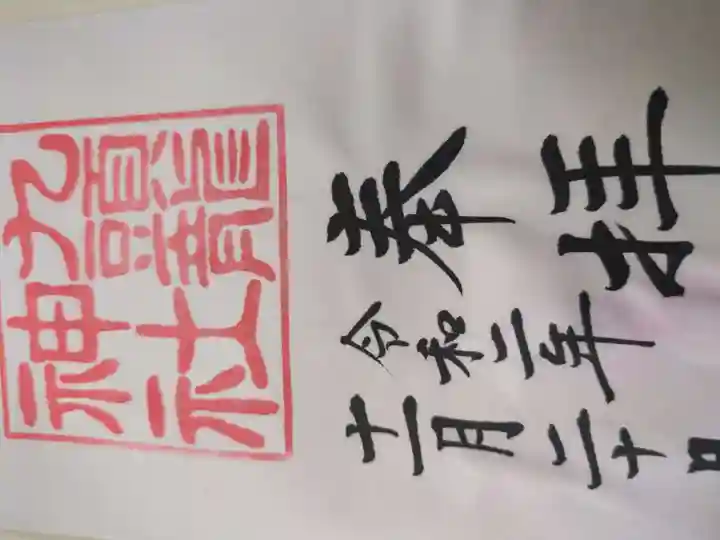 九頭龍
神社
奉拝
令和二年
十一月二十日